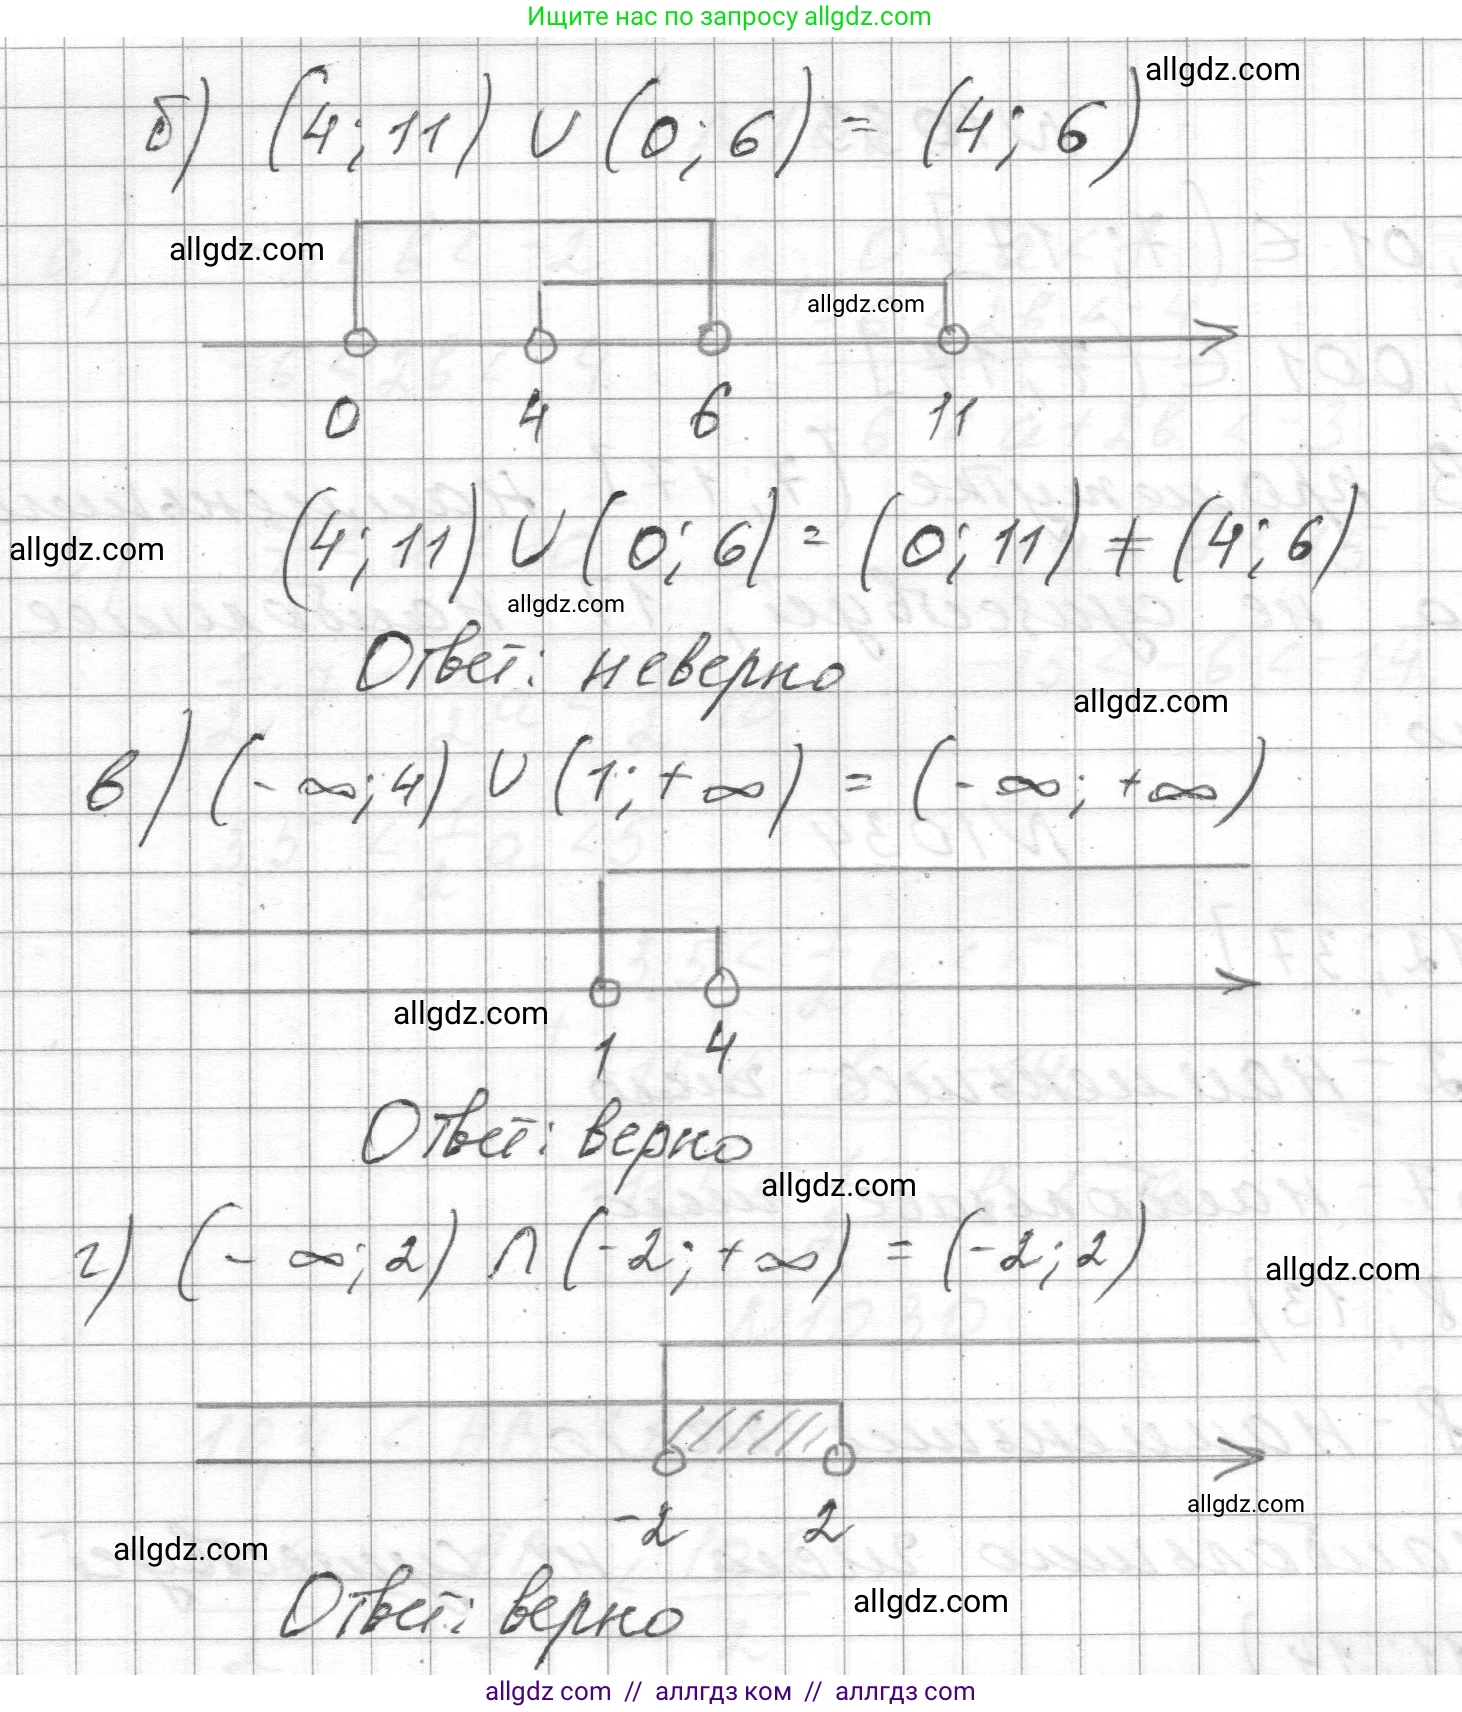 Ищите нас по запросу allgdz.com
allgdz.com
б) (4; 11) ∪ (0; 6) = (4; 6)
allgdz.com
allgdz.com
0 4 6 11
(4; 11) ∪ (0; 6) = (0; 11) ≠ (4; 6)
allgdz.com
allgdz.com
Ответ: неверно
allgdz.com
в) (-∞; 4) ∪ (1; +∞) = (-∞; +∞)
allgdz.com
1 4
Ответ: верно
allgdz.com
г) (-∞; 2) ∩ (-2; +∞) = (-2; 2)
allgdz.com
allgdz.com
-2 2
allgdz.com
Ответ: верно
allgdz.com
allgdz com // аллгдз ком // аллгдз com